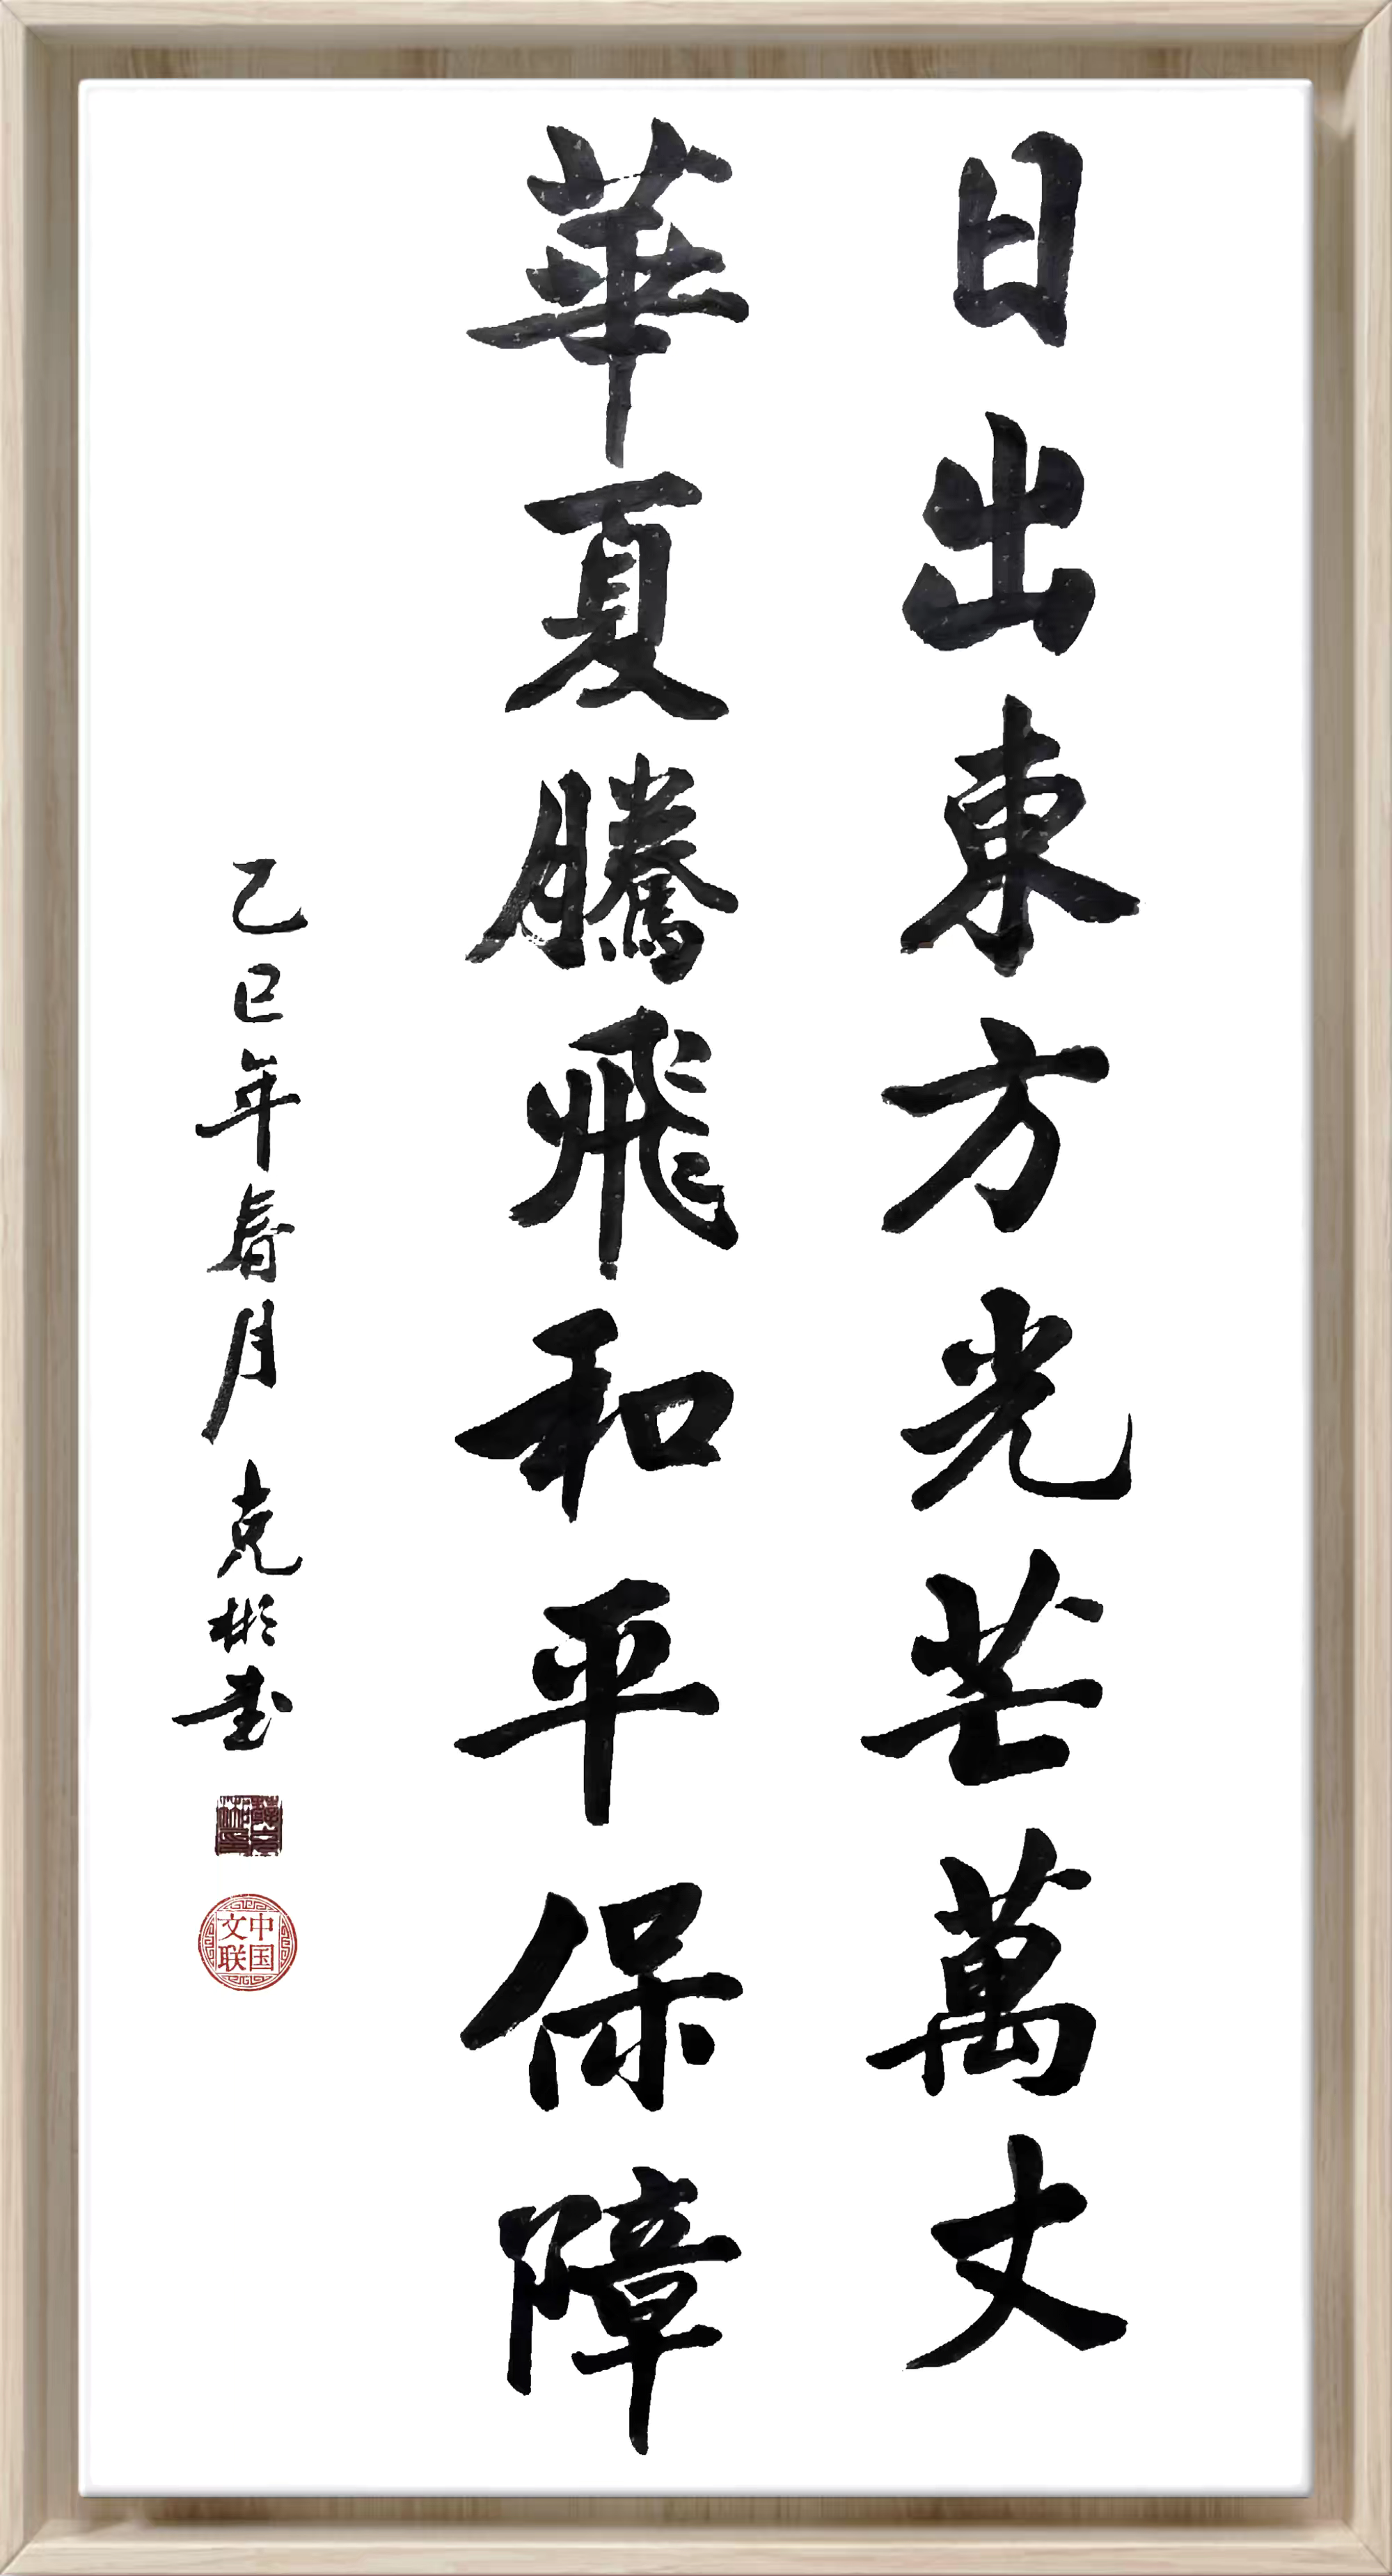 日出東方光芒萬丈
華夏騰飛和平保障
乙巳年春月克彬書
中国文联